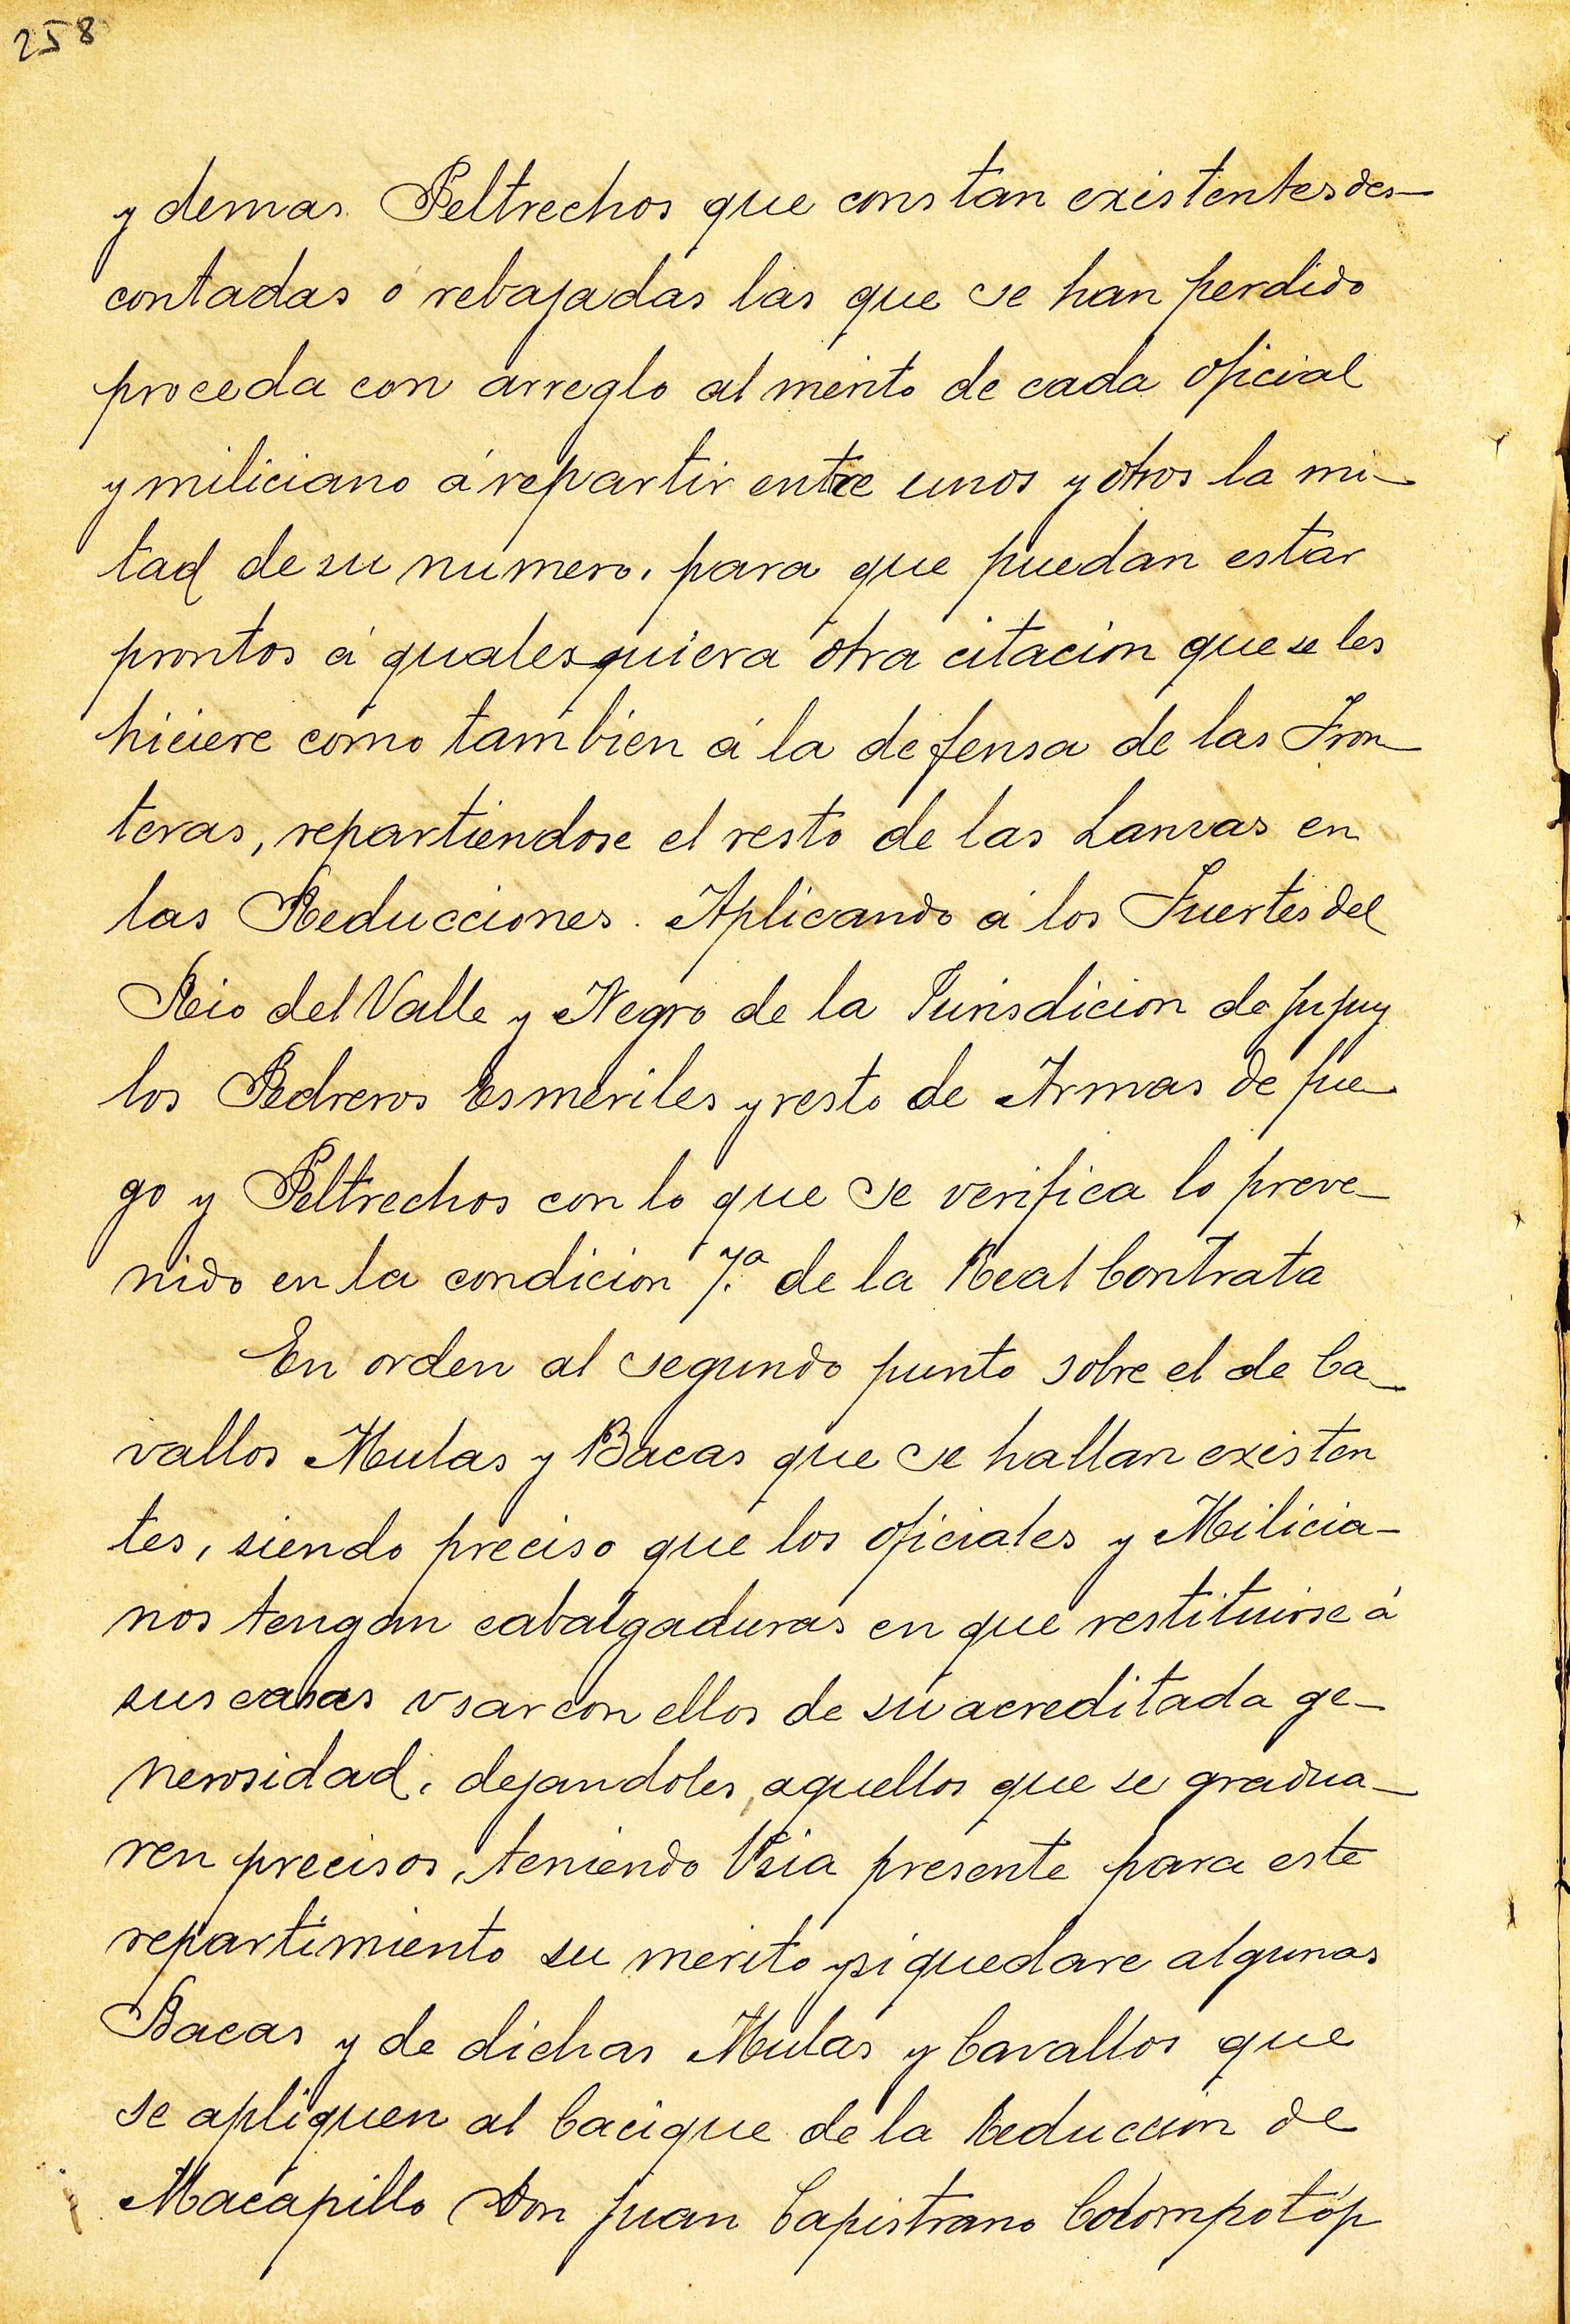 258
y demas Peltrechos que constan existentes des-
contadas ó rebajadas las que se han perdido
proceda con arreglo al merito de cada oficial
y miliciano á repartir entre unos y otros la mi-
tad de su numero, para que puedan estar
prontos á qualesquiera otra citacion que se les
hiciere como tambien á la defensa de las Fron-
teras, repartiendose el resto de las Lanzas en
las Reducciones. Aplicando á los Fuertes del
Rio del Valle y Negro de la Jurisdicion de Jujuy
los Pedreros Esmeriles y resto de Armas de fue-
go y Peltrechos con lo que se verifica lo preve-
nido en la condicion 7.ª de la Real Contrata
En orden al segundo punto sobre el de Ca-
vallos Mulas y Bacas que se hallan existen
tes, siendo preciso que los oficiales y Milicia-
nos tengan cabalgaduras en que restituirse á
sus casas vsar con ellos de su acreditada ge-
nerosidad, dejandoles, aquellos que se gradua-
ren precisos, teniendo Vsia presente para este
repartimiento su merito y si quedare algunas
Bacas y de dichas Mulas y Cavallos que
se apliquen al Cacique de la Reduccion de
Macapillo Don Juan Capistrano Colompotóp